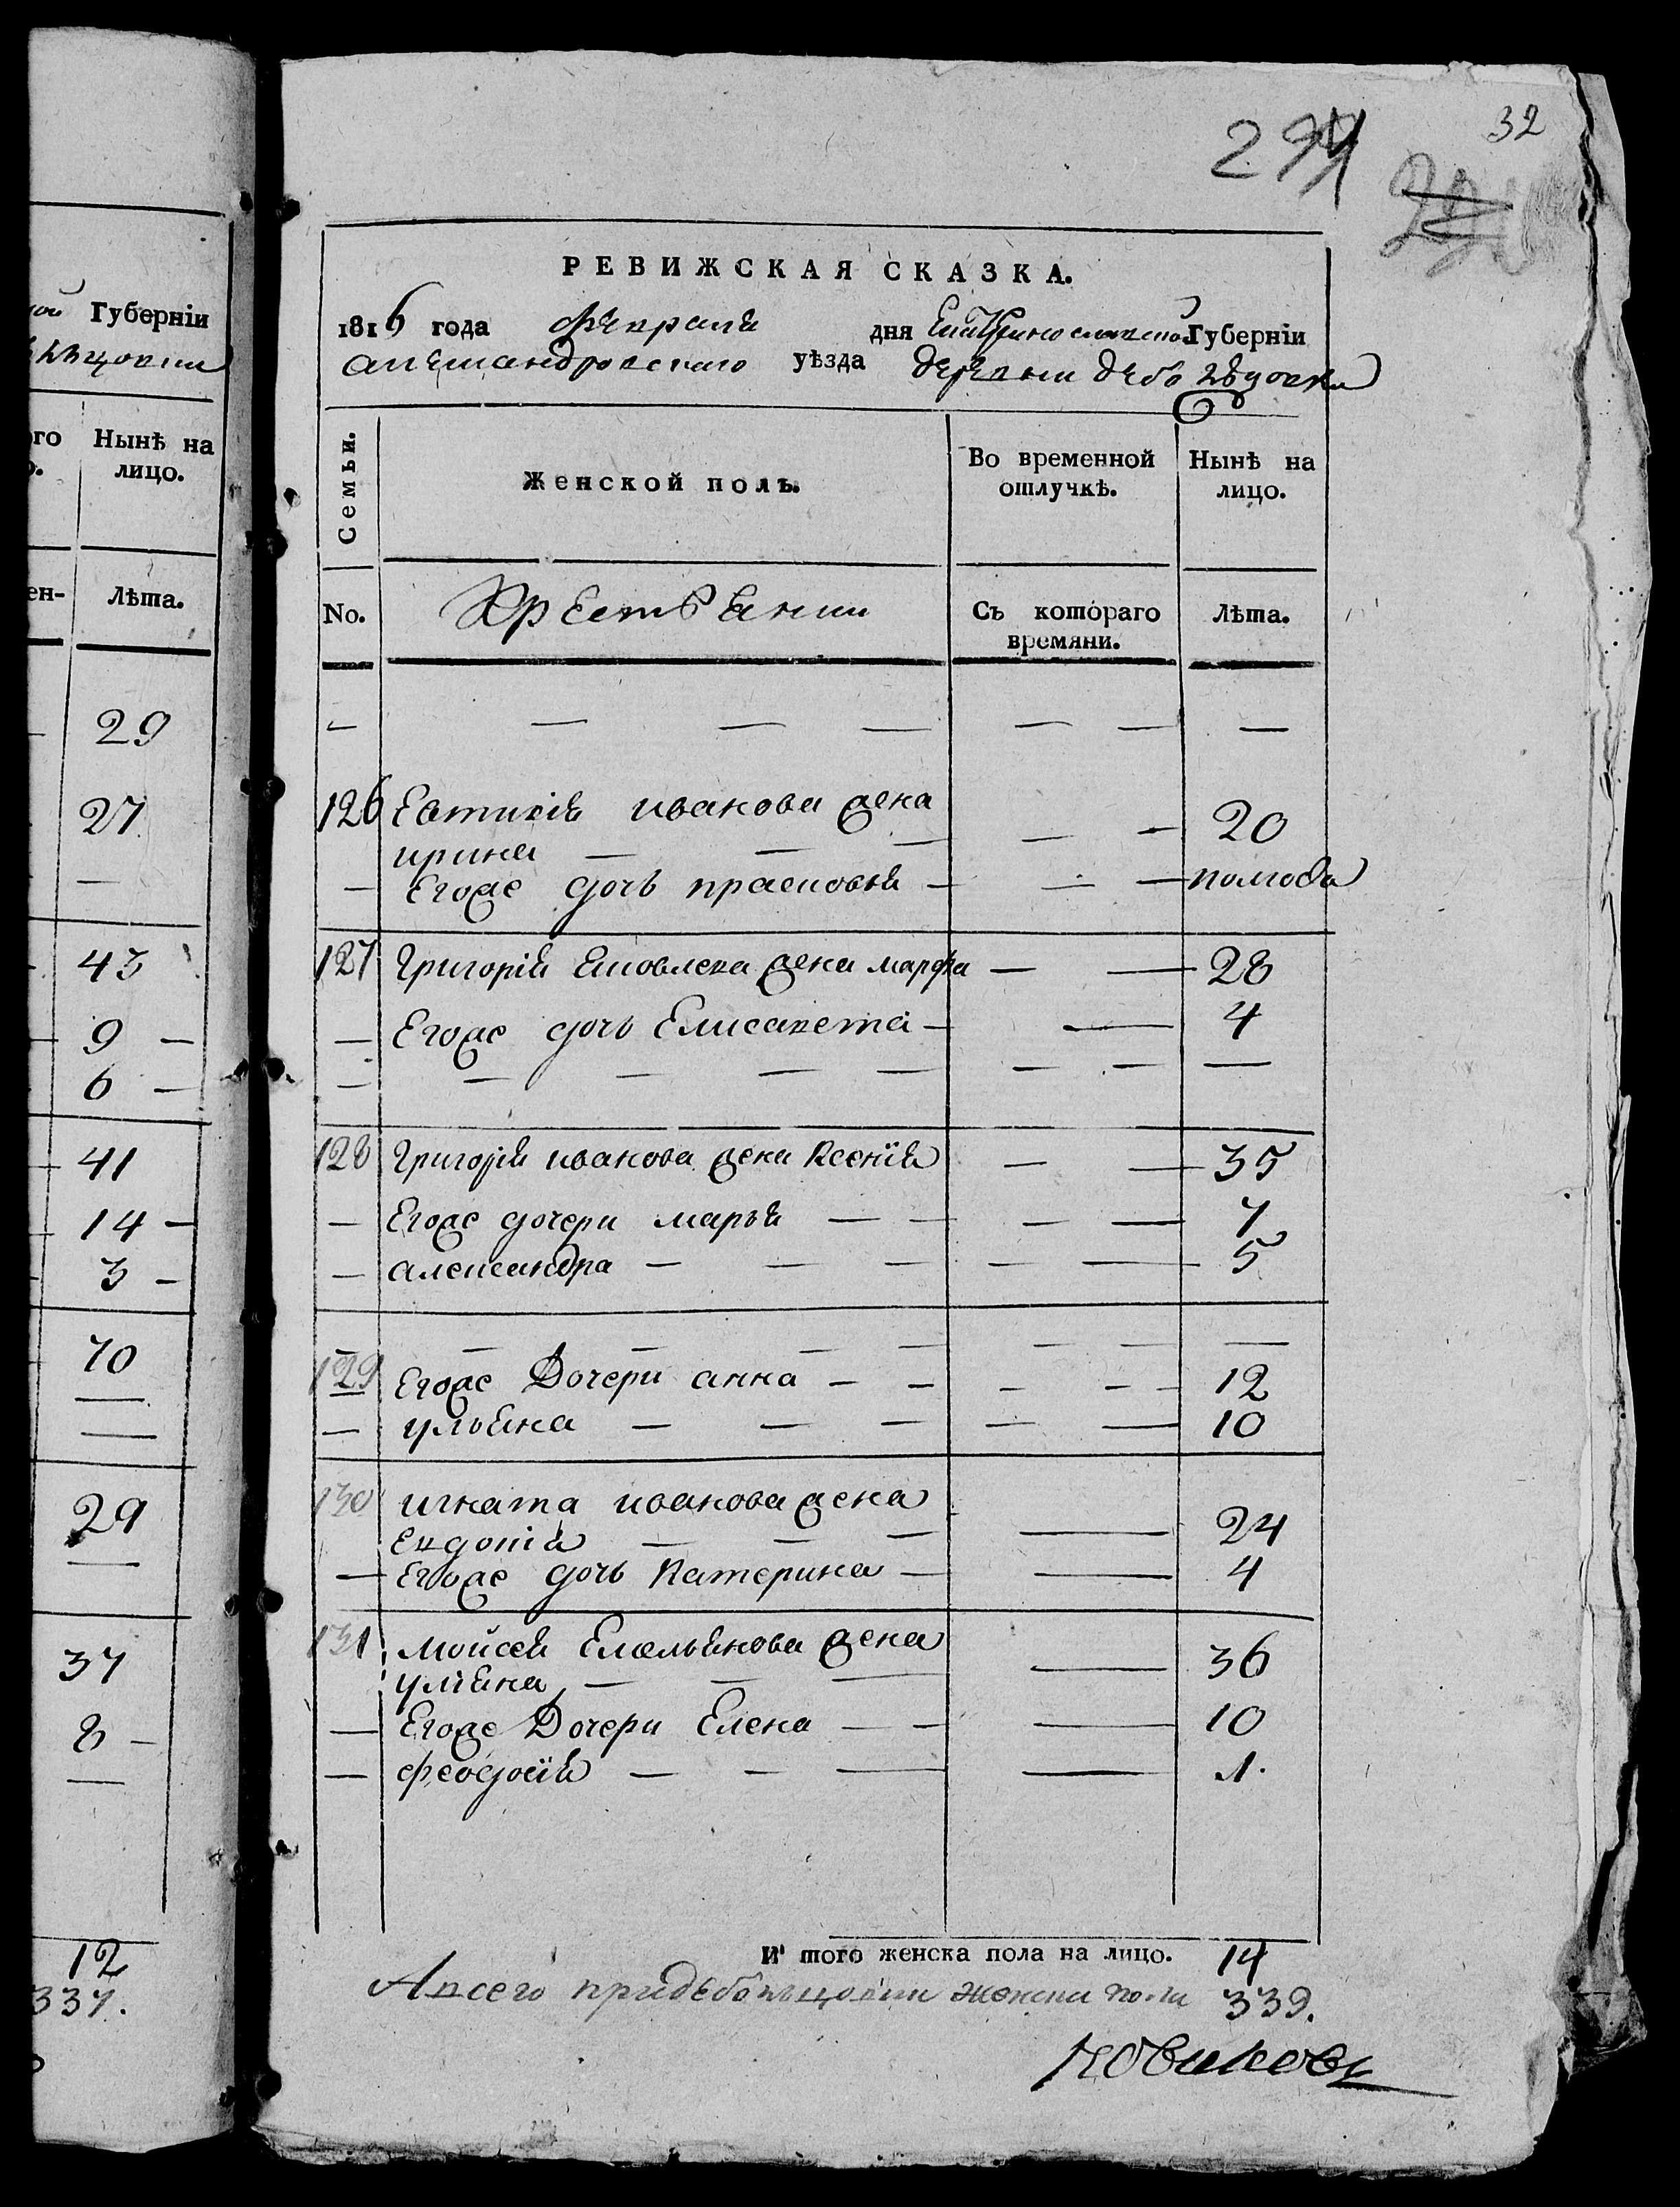 32
299
ной Губерніи
ого Нынѣ на
о. лицо.
ен- Лѣта.
29
27
43
9
6
41
14
3
70
29
37
8
12
337.
РЕВИЖСКАЯ СКАЗКА.
1816 года февраля дня Екатеринославской Губерніи
александровскаго уѣзда деревни дебальцовки
Семьи. Женской полъ. Во временной отлучкѣ. Нынѣ на лицо.
No. Хрестьянии Съ котораго времяни. Лѣта.
126 Евтихія иванова жена
ирина 20
Егоже дочь прасковья полгода
127 Григорія Яковлева жена марфа 28
Егоже дочь Елисавета 4
128 Григорія иванова жена Ксенія 35
Егоже дочери марья 7
александра 5
129 Егоже Дочери анна 12
ульяна 10
130 игната иванова жена
Евдокія 24
Егоже дочь Катерина 4
131 мойсея Емельянова жена
ульяна 36
Егоже Дочери Елена 10
феодосія 1.
И того женска пола на лицо. 14
Авсего 339.
Новиковъ